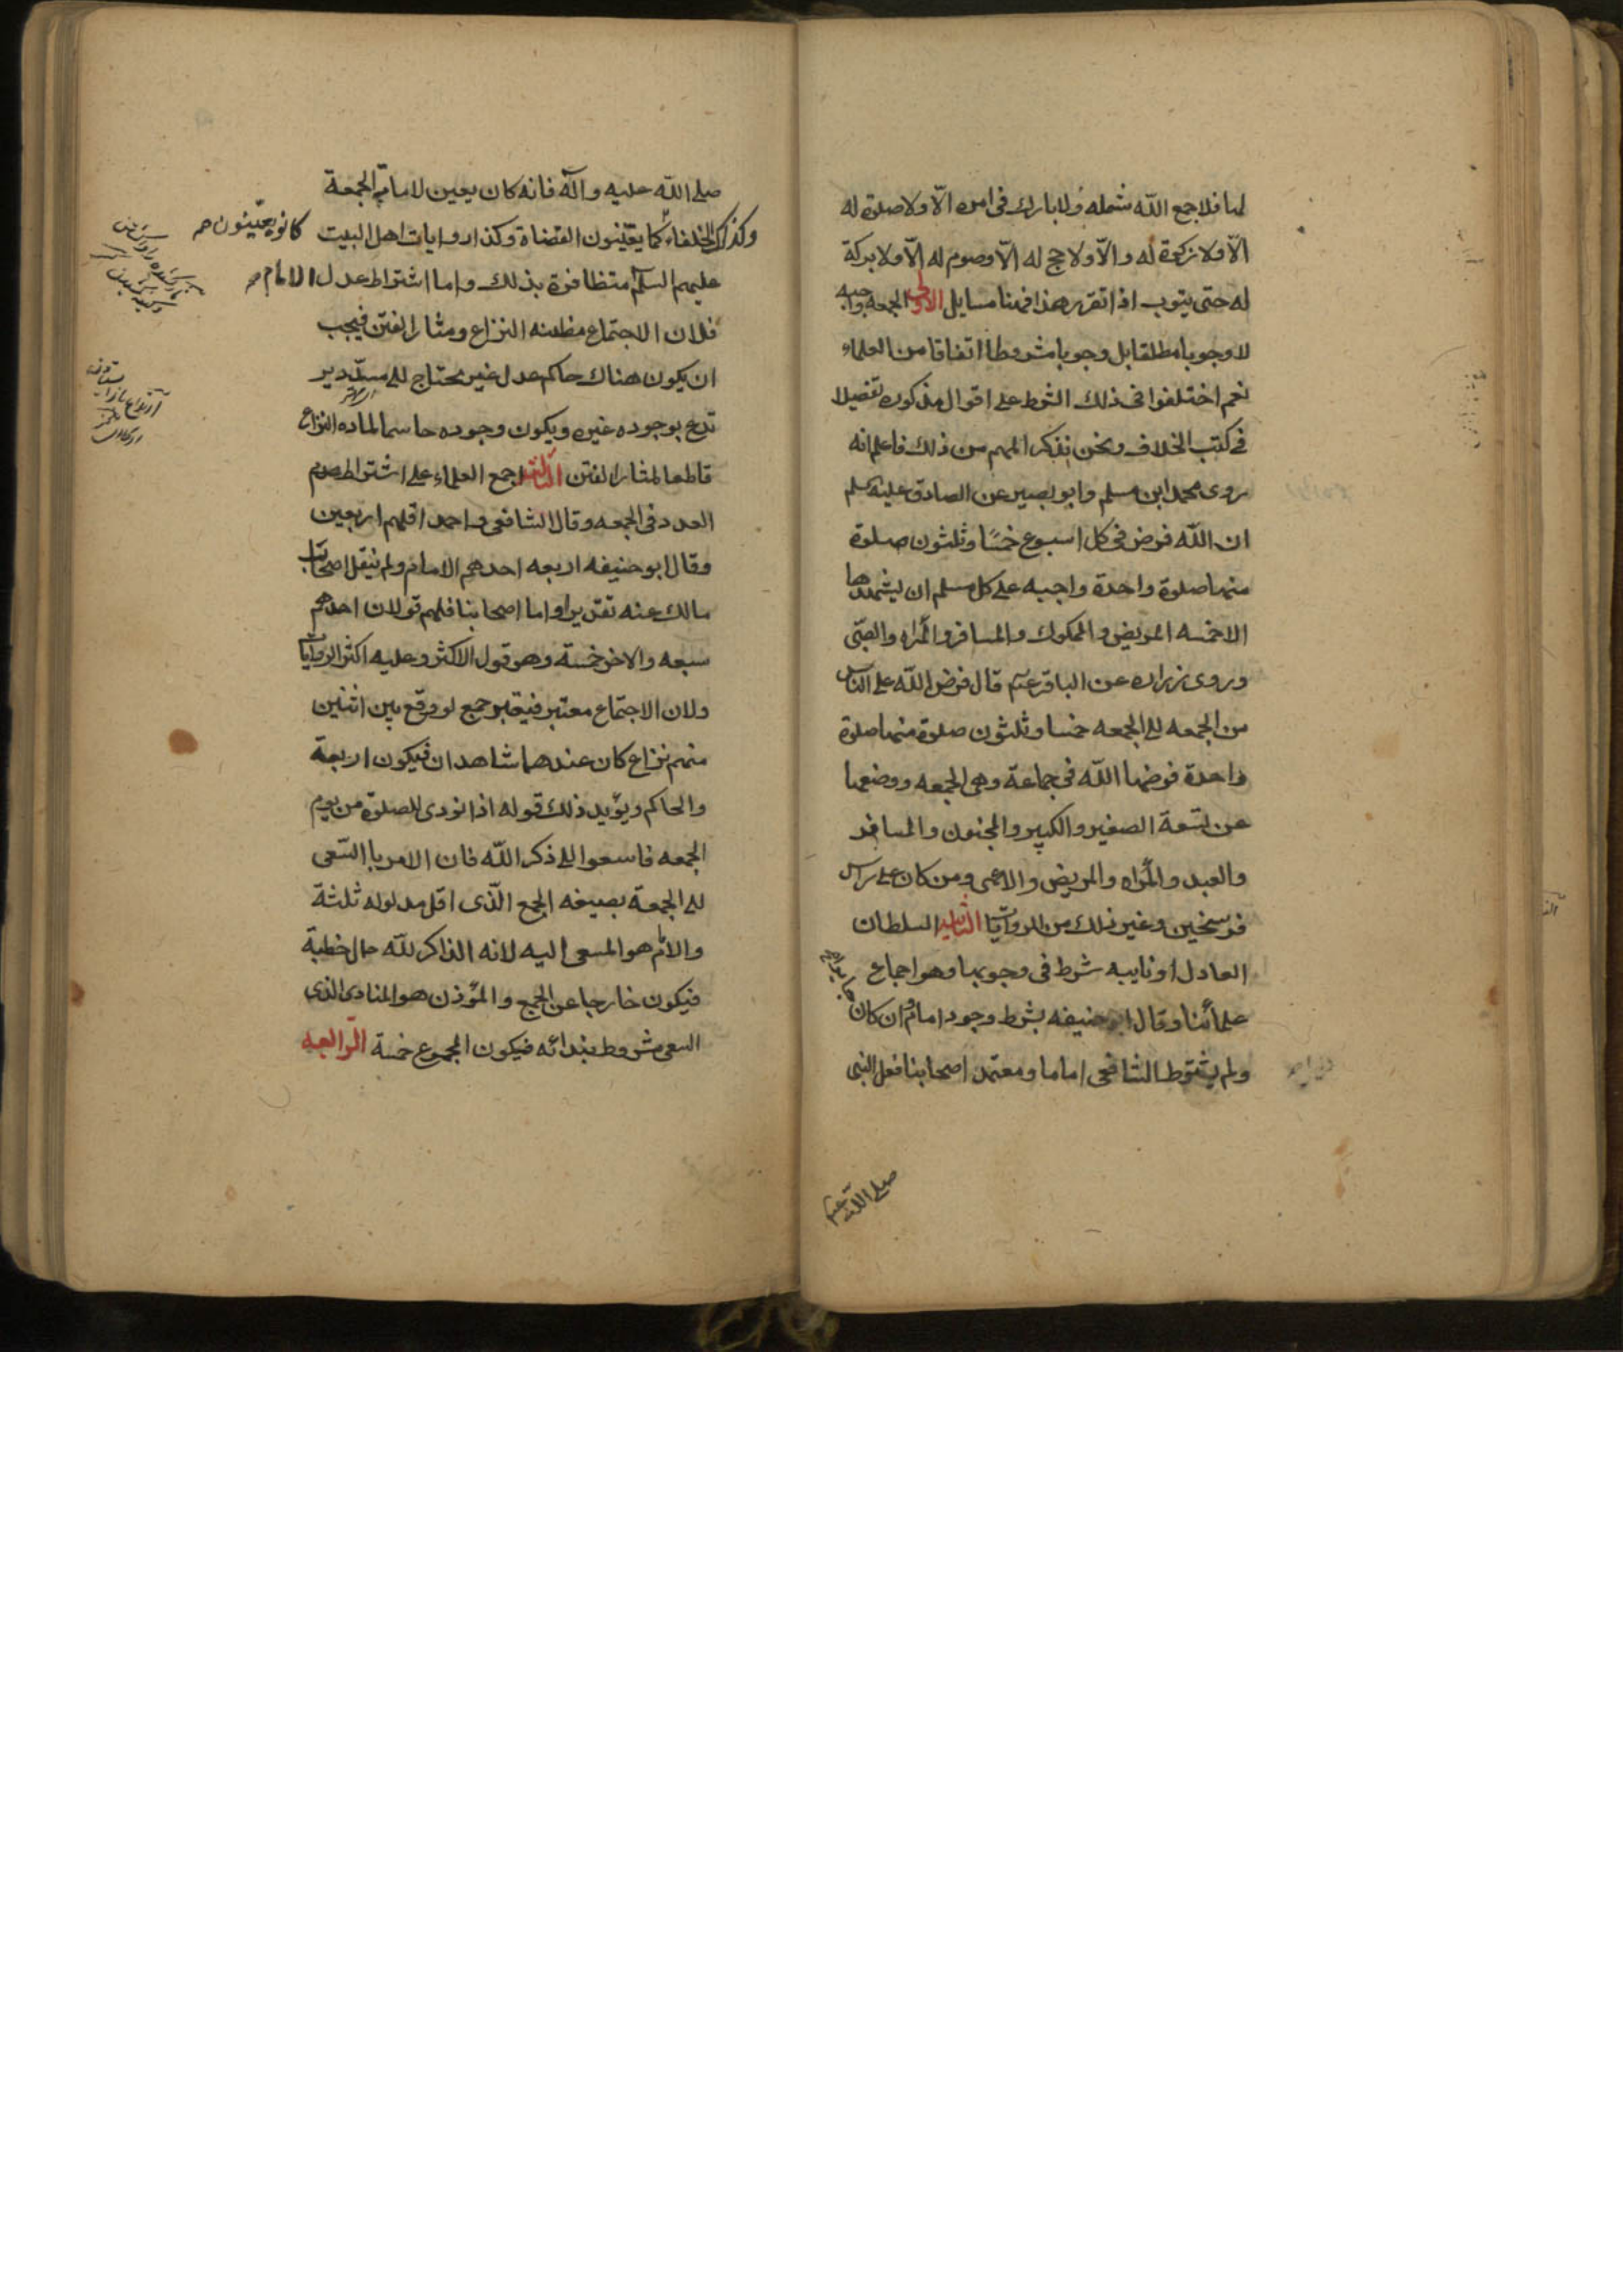 لها فلا جمع الله شمله ولا بارك فى امره الّا ولا صلوة له
الّا ولا زكوة له والّا ولا حج له الّا وصوم له الّا ولا بركة
له حتى يتوب اذا تقرر هذا فهنا مسايل الاولى الجمعه واجبه
لا وجوبا مطلقا بل وجوبا مشروطا اتفاقا من العلماء
نعم اختلفوا فى ذلك الشرط على اقوال مذكوره تفصيلا
فى كتب الخلاف ونحن نذكر المهم من ذلك فاعلم انه
روى محمد ابن مسلم وابو بصير عن الصادق عليه سلم
ان الله فرض فى كل اسبوع خمسًا وثلثون صلوة
منها صلوة واحدة واجبه على كل مسلم ان يشهدها
الا خمسه المريض والمملوك والمسافر والمراه والصبّى
وروى زراره عن الباقر عم قال فرض الله على الناس
من الجمعه الى الجمعه خمسا وثلثون صلوة منها صلوة
واحدة فرضها الله فى جماعة وهى الجمعه ووضعها
عن تسعة الصغير والكبير والمجنون والمسافر
والعبد والمراه والمريض والاعمى ومن كان على راس
فرسخين وغير ذلك من الروايات الثانيه السلطان
العادل او نايبه شرط فى وجوبها وهو اجماع
علمائنا وقال ابو حنيفه بشرط وجود امام وان كان
ولم يشترط الشافعى اماما ومعتمد اصحابنا فعل النبى
صلى الله عليه
صلى الله عليه وآله فانه كان يعين لامامة الجمعة
وكذلك الخلفاء كما يعيّنون القضاة وكذا روايات اهل البيت
كانو يعيّنون صح
عليهم السلم متظافرة بذلك واما اشتراط عدل الامام صح
فلان الاجتماع مظنه النزاع ومثار الفتن فيجب
ان يكون هناك حاكم عدل غير محتاج الى مسدّد ير
تدع بوجوده غيره ويكون وجوده حاسما لماده النزاع
قاطعا لمثار الفتن الثالثه اجمع العلماء على اشتراط
العدد فى الجمعه وقال الشافعى واحمد اقلهم اربعين
وقال ابو حنيفه اربعه احدهم الامام ولم ينقل اصحاب
مالك عنه تقديرا واما اصحابنا فلهم قولان احدهم
سبعه والاخر خمسة وهو قول الاكثر وعليه اكثر الروايات
ولان الاجتماع معتبر فيعتبر جمع لو وقع بين اثنين
منهم نزاع كان عندهما شاهدان فيكون اربعة
والحاكم ويؤيد ذلك قوله اذا نودى للصلوة من يوم
الجمعه فاسعوا الى ذكر الله فان الامر با السّعى
الى الجمعة بصيغه الجمع الّذى اقل مدلوله ثلثة
والامام هو المسعى اليه لانه الذاكر لله حال خطبة
فيكون خارجا عن الجمع والمؤذن هو المنادى الذى
السعى مشروط بندائه فيكون المجموع خمسة الرّابعه